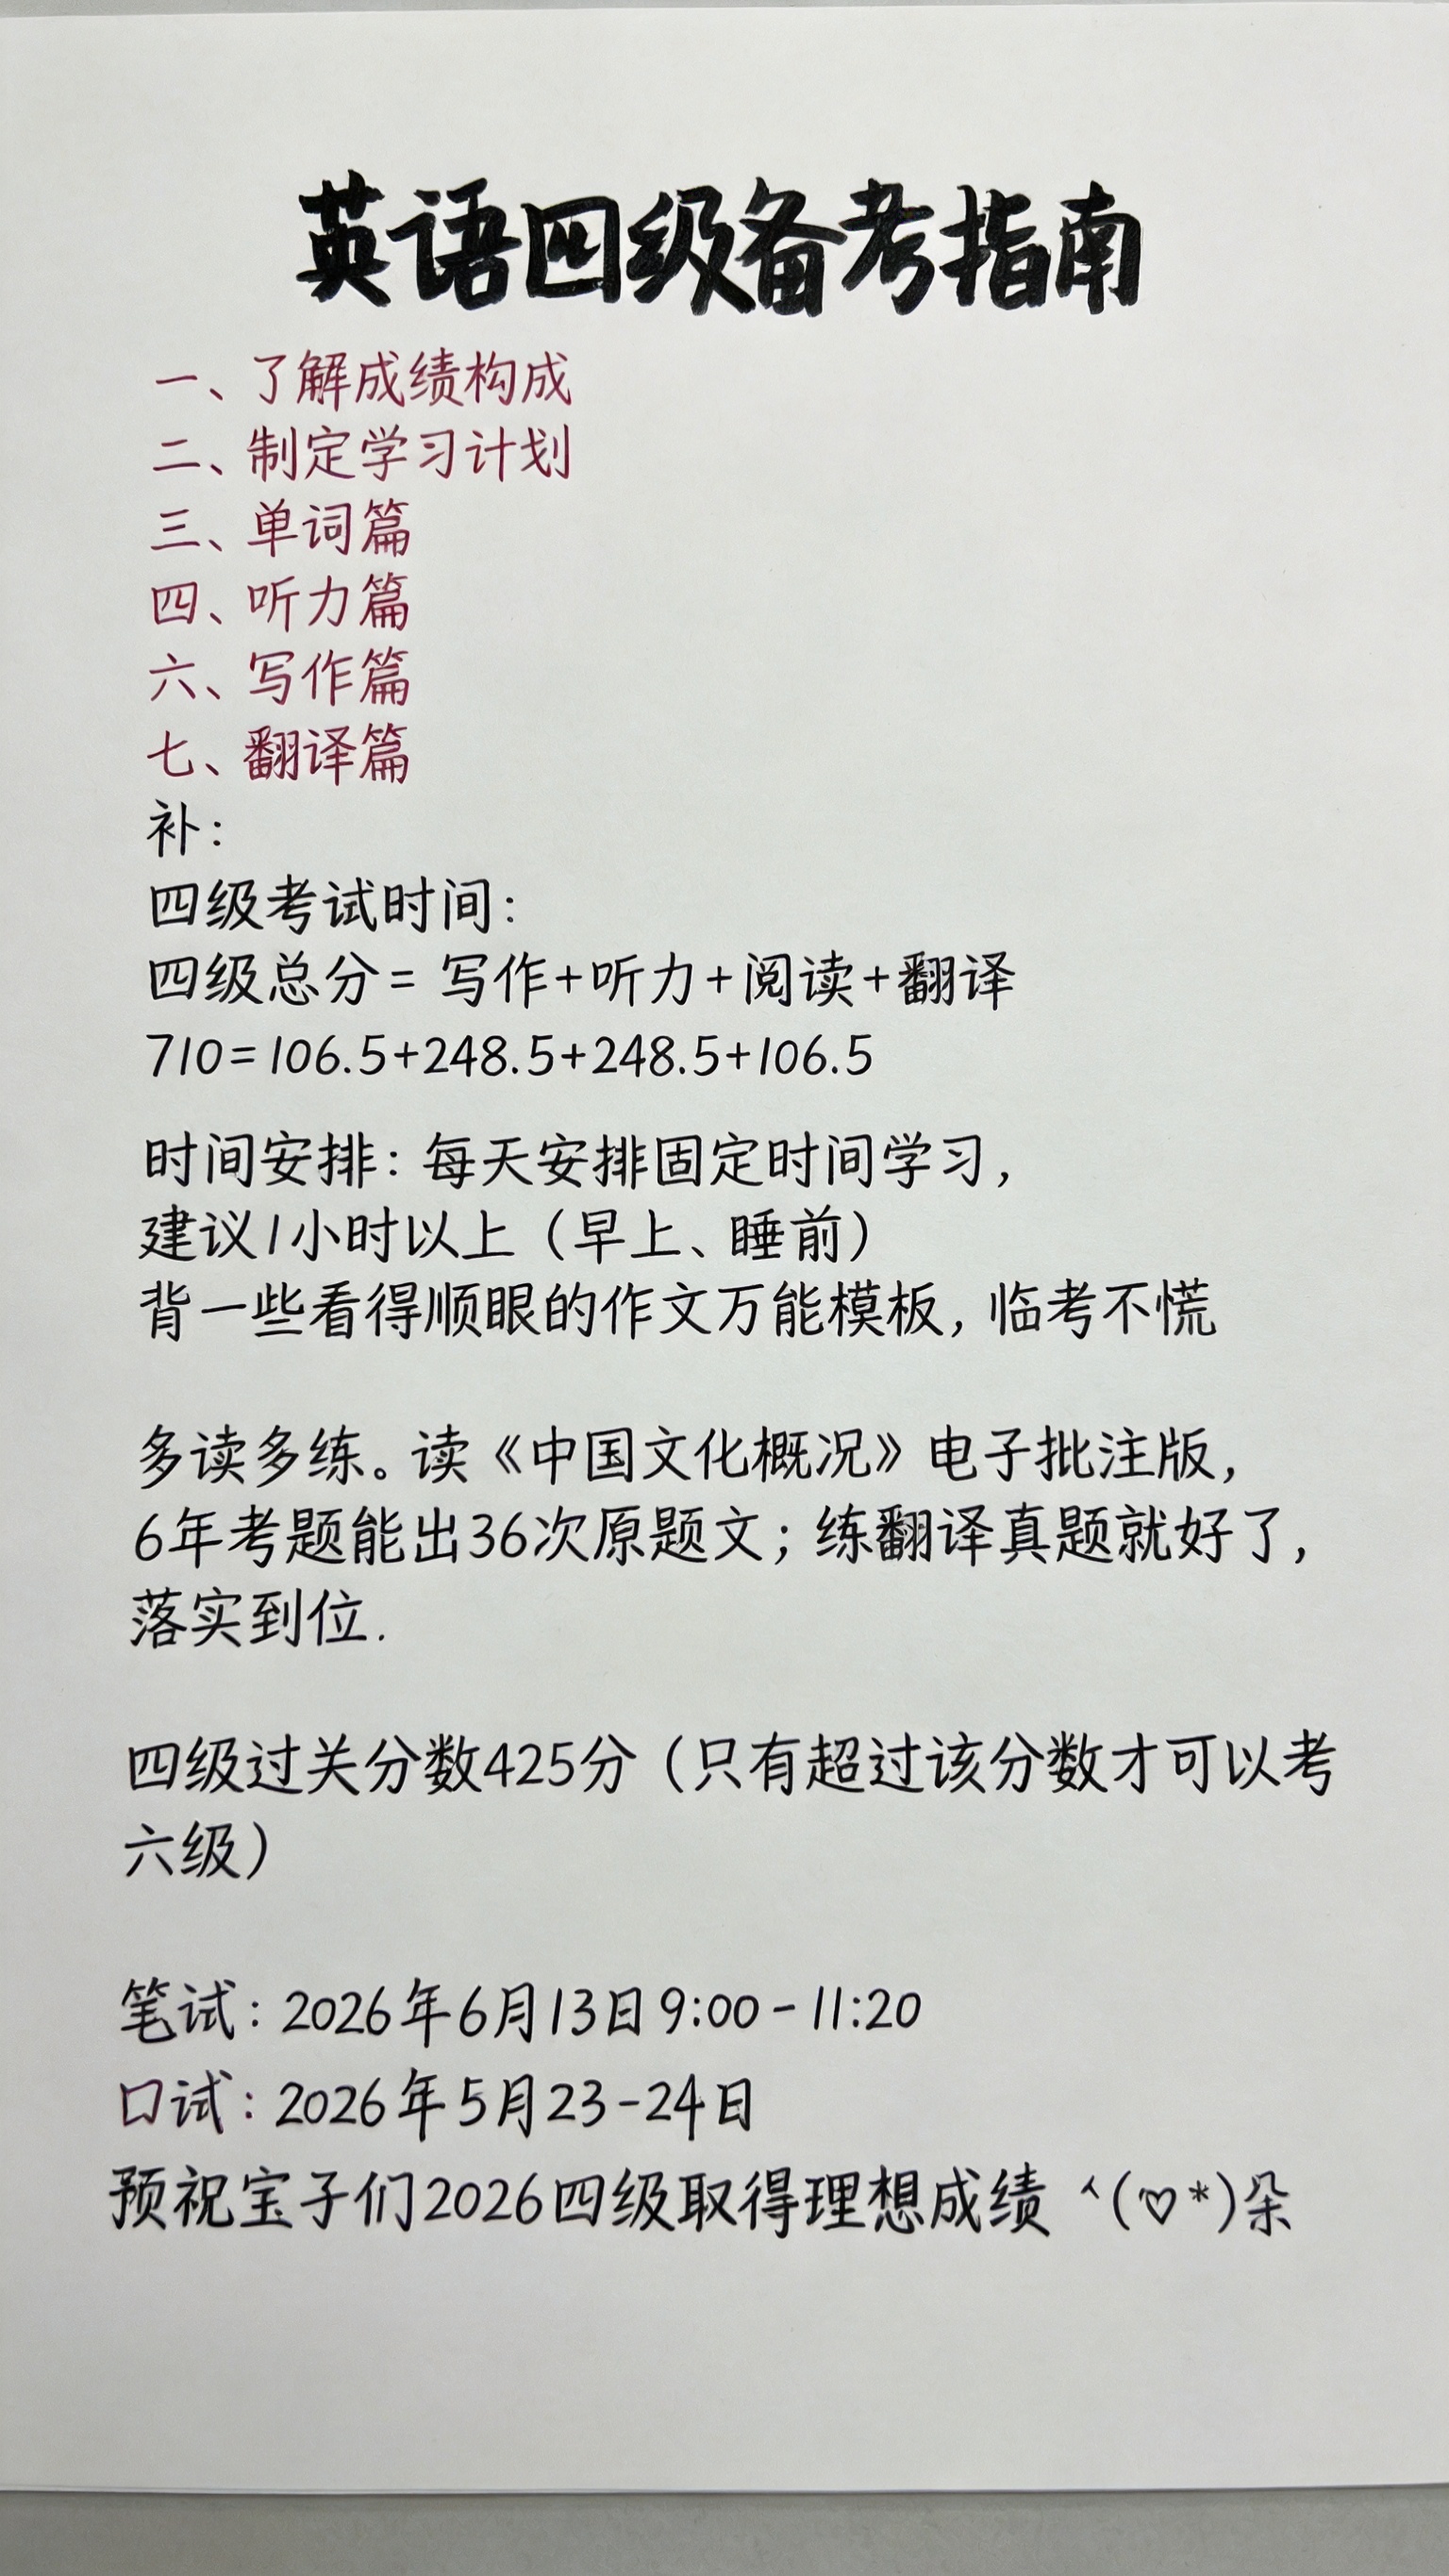 英语四级备考指南
一、了解成绩构成
二、制定学习计划
三、单词篇
四、听力篇
六、写作篇
七、翻译篇
补：
四级考试时间：
四级总分= 写作+听力+阅读+翻译
710=106.5+248.5+248.5+106.5
时间安排：每天安排固定时间学习，
建议1小时以上（早上、睡前）
背一些看得顺眼的作文万能模板，临考不慌
多读多练。读《中国文化概况》电子批注版，
6年考题能出36次原题文；练翻译真题就好了，
落实到位.
四级过关分数425分（只有超过该分数才可以考
六级）
笔试：2026年6月13日9:00-11:20
口试：2026年5月23-24日
预祝宝子们2026四级取得理想成绩 ^(♡*)朵